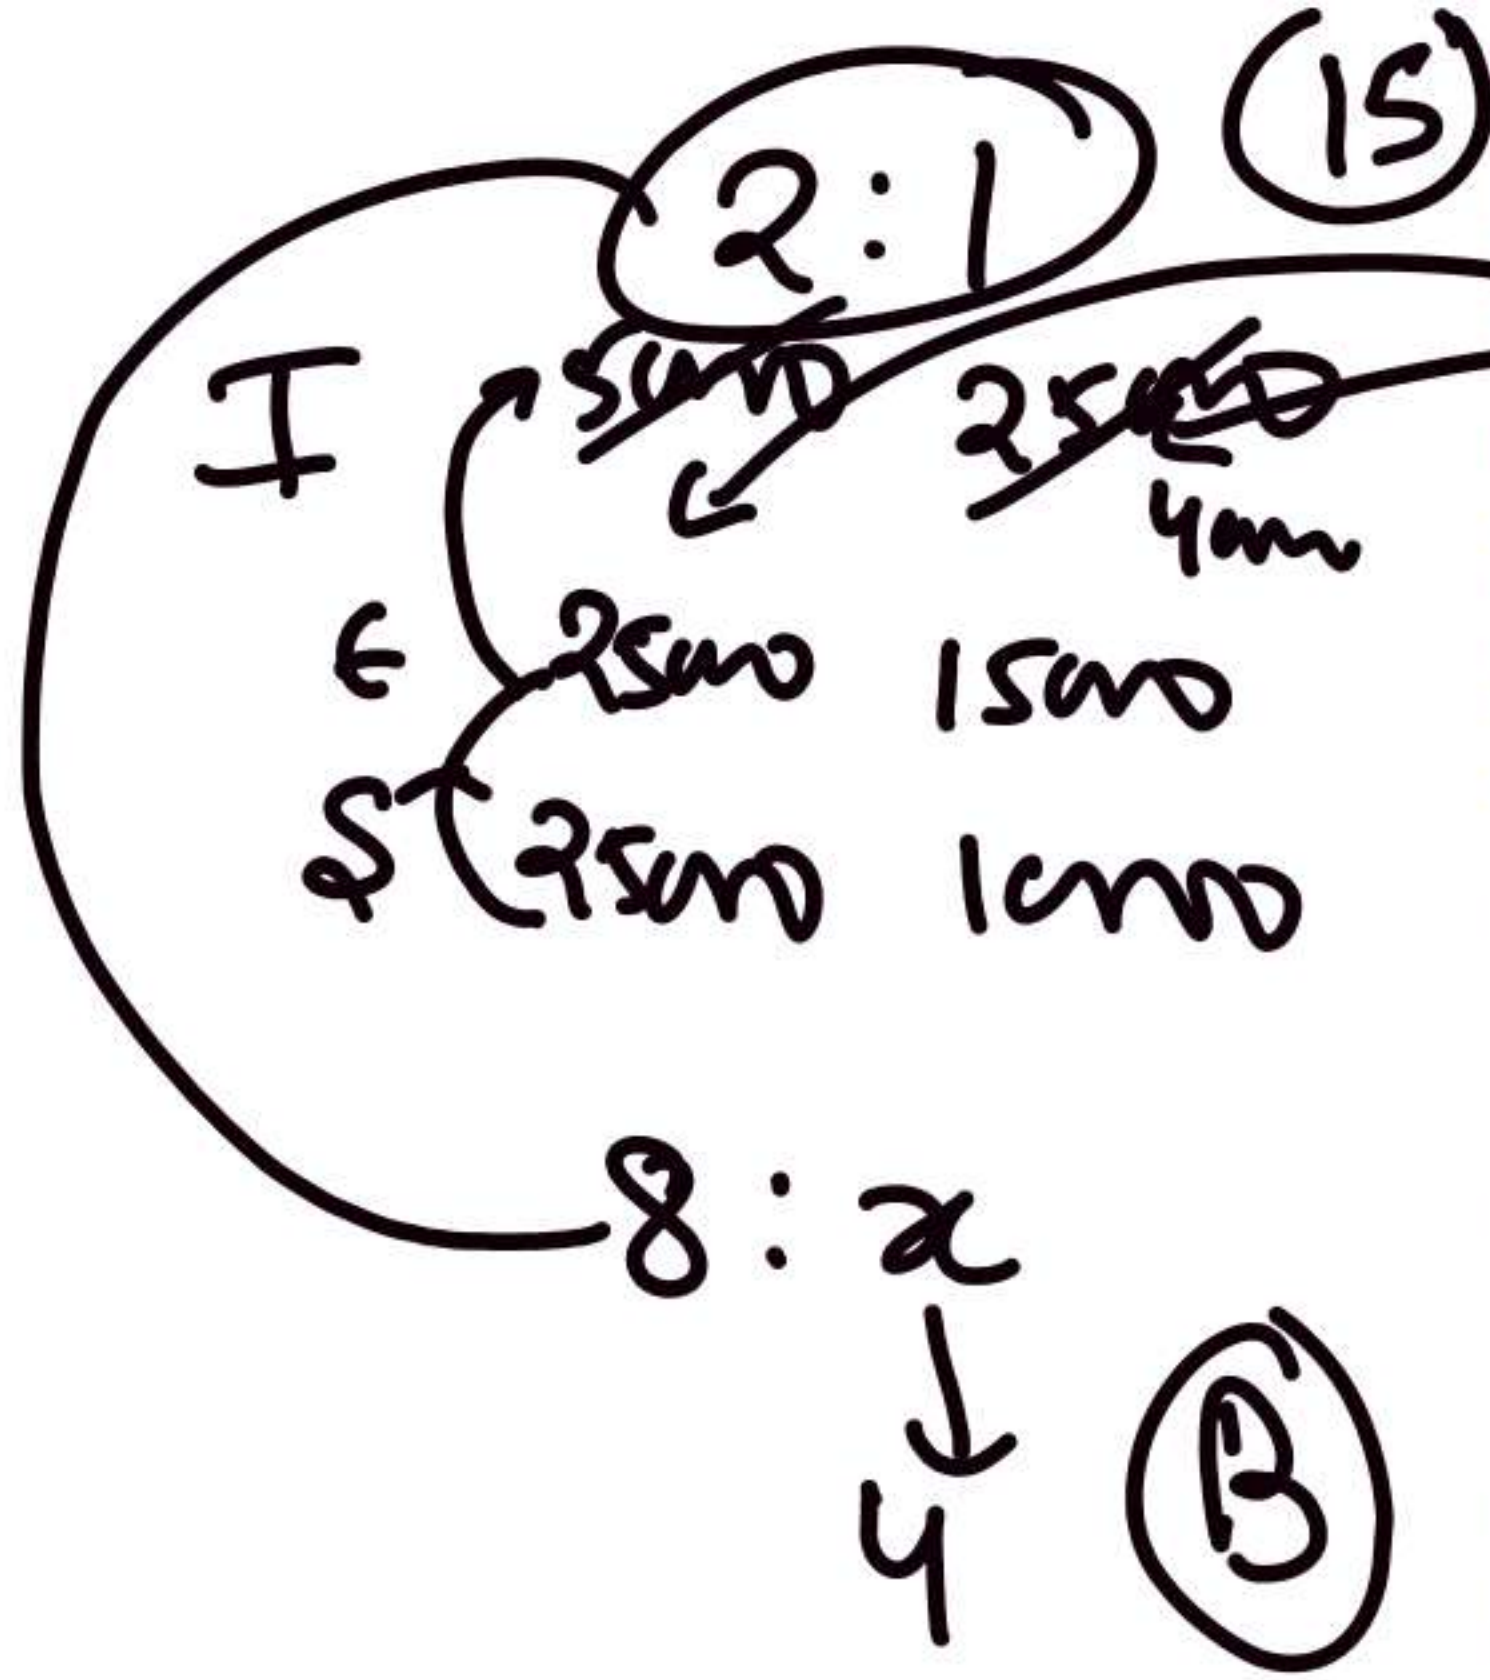 (15)
2 : 1
I 50000 25000
4000
E 25000 15000
S 25000 10000
8 : x
4
B